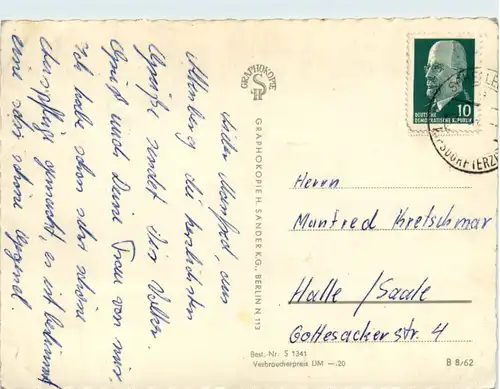 Lieber Manfred, aus
Altenberg die herzlichsten
Grüße sendet Dir Volker.
Grüß auch Deine Frau von mir.
Ich habe schon sehr schöne
gemacht, es ist
eine sehr schöne Gegend.
GRAPHOKOPIE
SH
GRAPHOKOPIE H. SANDER K.G., BERLIN N 113
10
DEUTSCHE
DEMOKRATISCHE REPUBLIK
Herrn
Manfred Kretschmar
Halle / Saale
Gottesackerstr. 4
Best. Nr. S 1341
Verbraucherpreis DM —.20
B 8/62